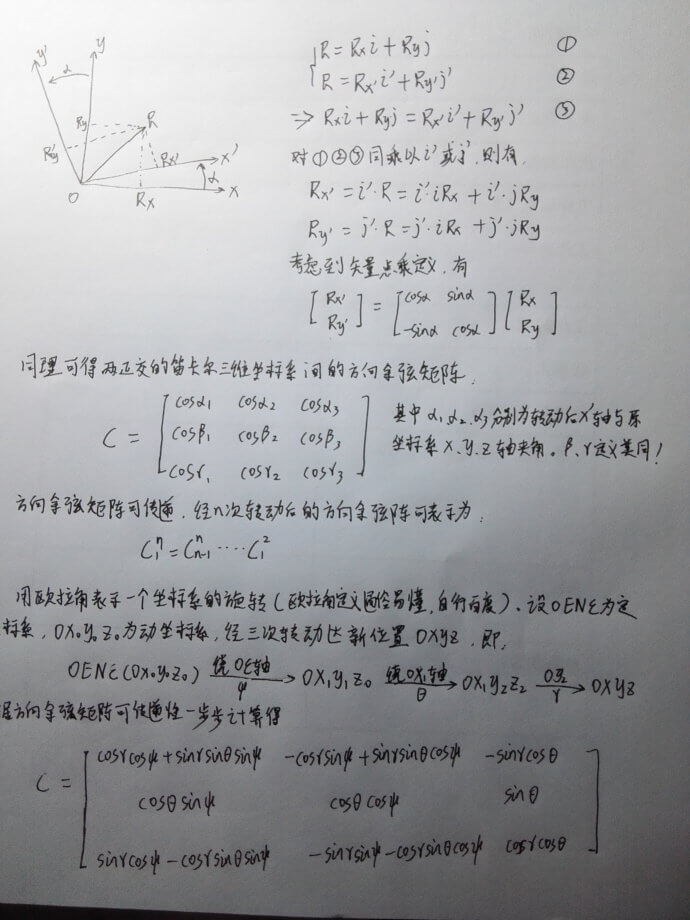 y' y
α
Ry R
Ry' Rx' x'
α
O Rx x
R = Rxi + Ryj ①
R = Rx'i' + Ry'j' ②
=> Rxi + Ryj = Rx'i' + Ry'j' ③
对①②③同乘以i'或j',则有,
Rx' = i'·R = i'·iRx + i'·jRy
Ry' = j'·R = j'·iRx + j'·jRy
考虑到矢量点乘定义,有
[Rx' Ry'] = [cosα sinα -sinα cosα] [Rx Ry]
同理可得两正交的笛卡尔三维坐标系间的方向余弦矩阵.
cosα1 cosα2 cosα3
C = cosβ1 cosβ2 cosβ3
cosγ1 cosγ2 cosγ3
其中α1,α2,α3分别为转动后x'轴与原
坐标系X、Y、Z轴夹角。β、γ定义类同!
方向余弦矩阵可传递,经n次转动后的方向余弦阵可表示为:
C₁ⁿ = Cₙ₋₁ⁿ ····· C₁²
用欧拉角表示一个坐标系的旋转(欧拉角定义通俗易懂,自行百度)、设OENξ为定
标系,OX₀Y₀Z₀为动坐标系,经三次转动达新位置OXYZ,即,
OENξ(OX₀Y₀Z₀) 绕Oξ轴 ψ → OX₁Y₁Z₀ 绕OX₁轴 θ → OX₁Y₂Z₂ γ → OXYZ
方向余弦矩阵可传递性一步步计算得
cosγcosψ+sinγsinθsinψ -cosγsinψ+sinγsinθcosψ -sinγcosθ
C = cosθsinψ cosθcosψ sinθ
sinγcosψ-cosγsinθsinψ -sinγsinψ-cosγsinθcosψ cosγcosθ